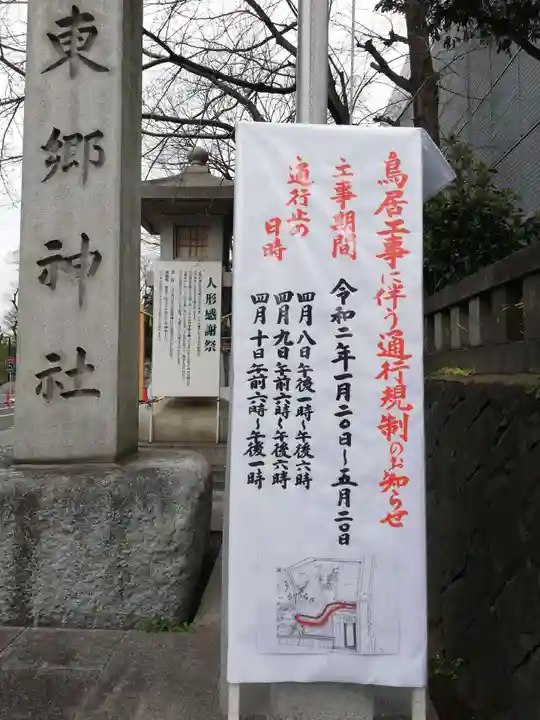 東郷神社
人形感謝祭
鳥居工事に伴う通行規制のお知らせ
工事期間
令和二年一月二〇日～五月二〇日
通行止の
日時
四月八日午後一時～午後六時
四月九日午前六時～午後六時
四月十日午前六時～午後一時